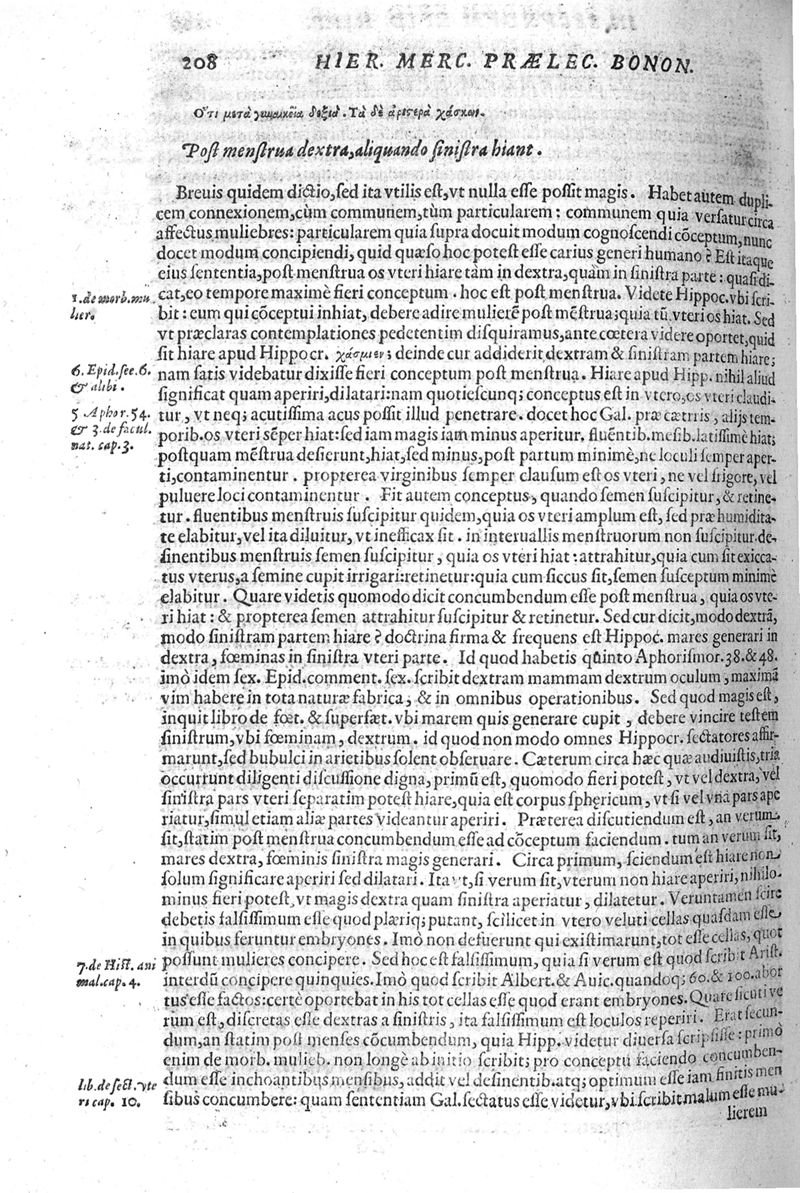 208 HIER. MERC. PRÆLEC. BONON.
Ὅτι μετὰ γυναικεῖα δεξιά. Τὰ δὲ ἀριστερὰ χάσκουσι.
Post menstrua dextra, aliquando sinistra hiant.
Breuis quidem dictio, sed ita vtilis est, vt nulla esse possit magis. Habet autem dupli-
cem connexionem, cùm communem, tùm particularem: communem quia versatur circa
affectus muliebres: particularem quia supra docuit modum cognoscendi cõceptum, nunc
docet modum concipiendi, quid quæso hoc potest esse carius generi humano? Est itaque
eius sententia, post menstrua os vteri hiare tàm in dextra, quàm in sinistra parte: quasi di-
1. de morb. mu
lier.
cat, eo tempore maximè fieri conceptum. hoc est post menstrua. Videte Hippoc. vbi scri-
bit: eum qui cõceptui inhiat, debere adire mulierẽ post mẽstrua; quia tũ vteri os hiat. Sed
vt præclaras contemplationes pedetentim disquiramus, ante cœtera videre oportet, quid
sit hiare apud Hippocr. χάσμιεν; deinde cur addiderit dextram & sinistram partem hiare;
6. Epid. sec. 6.
& alibi.
5 Aphor. 54.
& 3. de facul.
nat. cap. 3.
nam satis videbatur dixisse fieri conceptum post menstrua. Hiare apud Hipp. nihil aliud
significat quam aperiri, dilatari: nam quotiescunq; conceptus est in vtero, os vteri claudi-
tur, vt neq; acutissima acus possit illud penetrare. docet hoc Gal. præ cætris, alijs tem-
porib. os vteri sẽper hiat: sed iam magis iam minus aperitur. fluẽtib. mẽsib. latissimè hiat;
postquam mẽstrua desierunt, hiat, sed minus, post partum minimè, ne loculi semper aper-
ti, contaminentur. propterea virginibus semper clausum est os vteri, ne vel frigore, vel
puluere loci contaminentur. Fit autem conceptus, quando semen suscipitur, & retine-
tur. fluentibus menstruis suscipitur quidem, quia os vteri amplum est, sed præ humidita-
te elabitur, vel ita diluitur, vt inefficax sit. in interuallis menstruorum non suscipitur. de-
sinentibus menstruis semen suscipitur, quia os vteri hiat: attrahitur, quia cum sit exicca-
tus vterus, a semine cupit irrigari: retinetur: quia cum siccus sit, semen susceptum minimè
elabitur. Quare videtis quomodo dicit concumbendum esse post menstrua, quia os vte-
ri hiat: & propterea semen attrahitur suscipitur & retinetur. Sed cur dicit, modo dextrã,
modo sinistram partem hiare? doctrina firma & frequens est Hippoc. mares generari in
dextra, fœminas in sinistra vteri parte. Id quod habetis quinto Aphorismor. 38. & 48.
imò idem sex. Epid. comment. sex. scribit dextram mammam dextrum oculum, maximã
vim habere in tota naturæ fabrica, & in omnibus operationibus. Sed quod magis est,
inquit libro de fœt. & superfæt. vbi marem quis generare cupit, debere vincire testem
sinistrum, vbi fœminam, dextrum. id quod non modo omnes Hippocr. sectatores affir-
marunt, sed bubulci in arietibus solent obseruare. Cæterum circa hæc quæ audiuistis, tria
occurrunt diligenti discussione digna, primũ est, quomodo fieri potest, vt vel dextra, vel
sinistra pars vteri separatim potest hiare, quia est corpus sphericum, vt si vel vna pars ape
riatur, simul etiam aliæ partes videantur aperiri. Præterea discutiendum est, an verum
sit, statim post menstrua concumbendum esse ad cõceptum faciendum. tum an verum sit,
mares dextra, fœminis sinistra magis generari. Circa primum, sciendum est hiare non
solum significare aperiri sed dilatari. Ita vt, si verum sit, vterum non hiare aperiri, nihilo-
minus fieri potest, vt magis dextra quam sinistra aperiatur, dilatetur. Veruntamen scire
debetis falsissimum esse quod plæriq; putant, scilicet in vtero veluti cellas quasdam esse
in quibus feruntur embryones. Imò non defuerunt qui existimarunt, tot esse cellas, quot
7. de Hist. ani
mal. cap. 4.
possunt mulieres concipere. Sed hoc est falsissimum, quia si verum est quod scribit Arist.
interdũ concipere quinquies. Imò quod scribit Albert. & Auic. quandoq; 60. & 100. abor
tus esse factos: certè oportebat in his tot cellas esse quod erant embryones. Quare sicuti ve
rum est, discretas esse dextras a sinistris, ita falsissimum est loculos reperiri. Erat secun-
dum, an statim post menses cõcumbendum, quia Hipp. videtur diuersa scripsisse: primo
enim de morb. mulieb. non longè ab initio scribit; pro conceptu faciendo concumben-
lib. de sect. vte
ri cap. 10.
dum esse inchoantibus mensibus, addit vel desinentib. atq; optimum esse iam finitis men
sibus concumbere: quam sententiam Gal. sectatus esse videtur, vbi scribit malum esse mu-
lierem